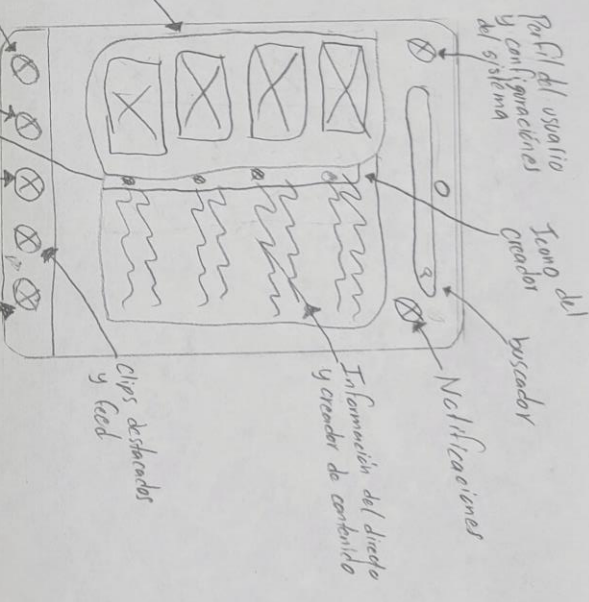 Perfil del usuario
y configuraciónes
del sistema
Icono del
creador
buscador
Notificaciones
Información del directo
y creador de contenido
Clips destacados
y feed